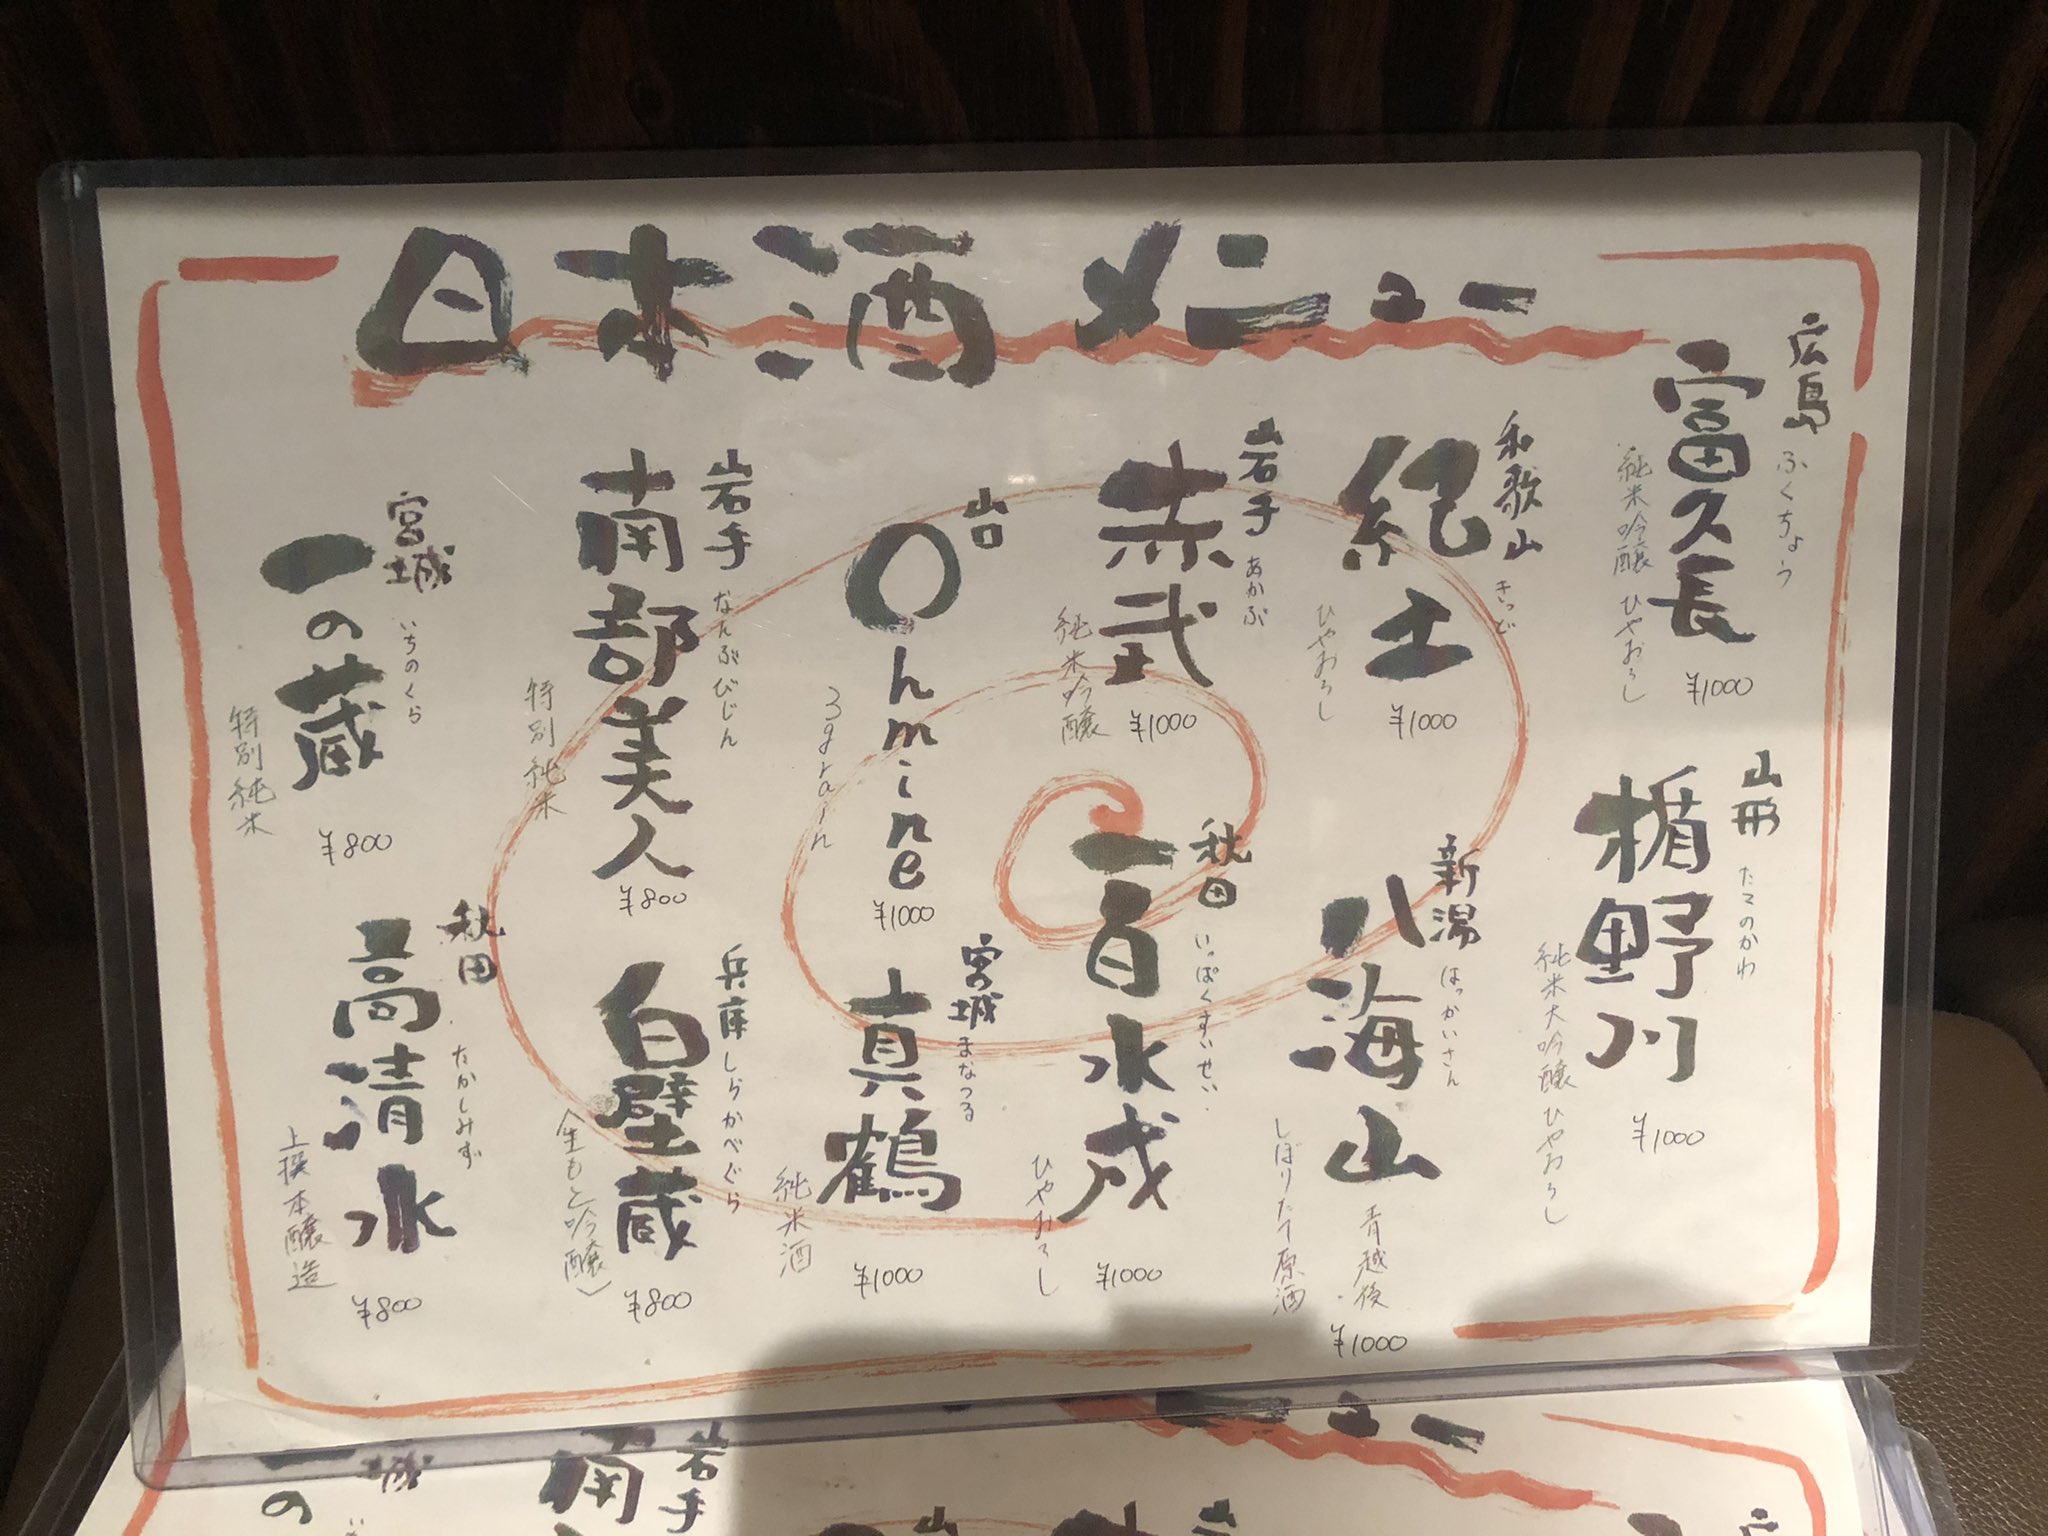 日本酒メニュー
広島
ふくちょう
富久長
純米吟醸 ひやおろし
¥1000
山形
たてのかわ
楯野川
純米大吟醸 ひやおろし
¥1000
和歌山
きっど
紀土
ひやおろし
¥1000
新潟
はっかいさん
八海山
青越後
しぼりたて原酒
¥1000
岩手
あかぶ
赤武
純米吟醸
¥1000
秋田
いっぱくすいせい
一白水成
ひやおろし
¥1000
山口
Ohmine
3grain
¥1000
宮城
まなつる
真鶴
純米酒
¥1000
岩手
なんぶびじん
南部美人
特別純米
¥800
兵庫
しらかべぐら
白壁蔵
〈生もと吟醸〉
¥800
宮城
いちのくら
一の蔵
特別純米
¥800
秋田
たかしみず
高清水
上撰本醸造
¥800
ニュー
岩手
南
宮城
一の